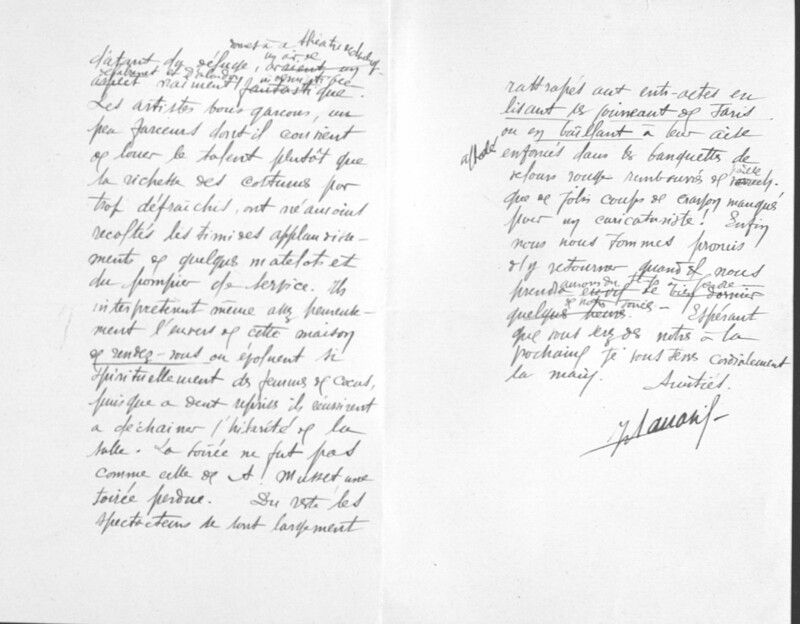 donnent à ce théâtre de
d'avant dy déluge, un air de
aspect vraiment fantastique.
Les artistes bons garçons, un
peu farceurs dont il convient
de louer le talent plutôt que
la richesse des costumes par
trop défraîchis, ont néanmoins
récoltés les timides applaudisse-
ments de quelques matelots et
du pompier de service. Ils
interprètent même assez heureuse-
ment l'envers de cette maison
de rendez-vous où évoluent si
spirituellement des femmes de cocus,
puisque a deux reprises ils réussirent
a déchainer l'hilarité de la
salle. La soirée ne fut pas
comme celle de A. Musset une
soirée perdue. Du reste les
spectateurs se sont largement
rattrapés aux entr-actes en
lisant les journeaux de Paris
ou en baillant à leur aise
enfoncés dans les banquettes de
velours rouge rembourrés de
que de jolis coups de crayon manqués
pour un caricaturiste! Enfin
nous nous sommes promis
d'y retourner quand nous
prendre de bien
quelques de notre Espérant
que vous serez des notre à la
prochaine je vous serre cordialement
la main. Amitiés.